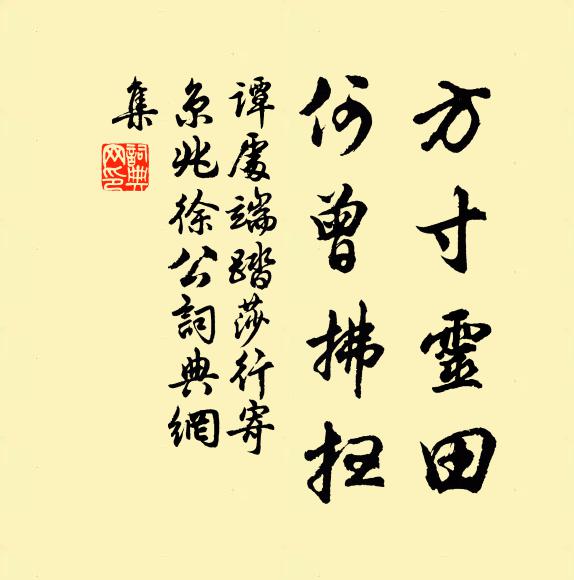 方寸靈田
何曾拂扫
譚處端踏莎行寄
京兆徐公詞典網
集
詞典網印